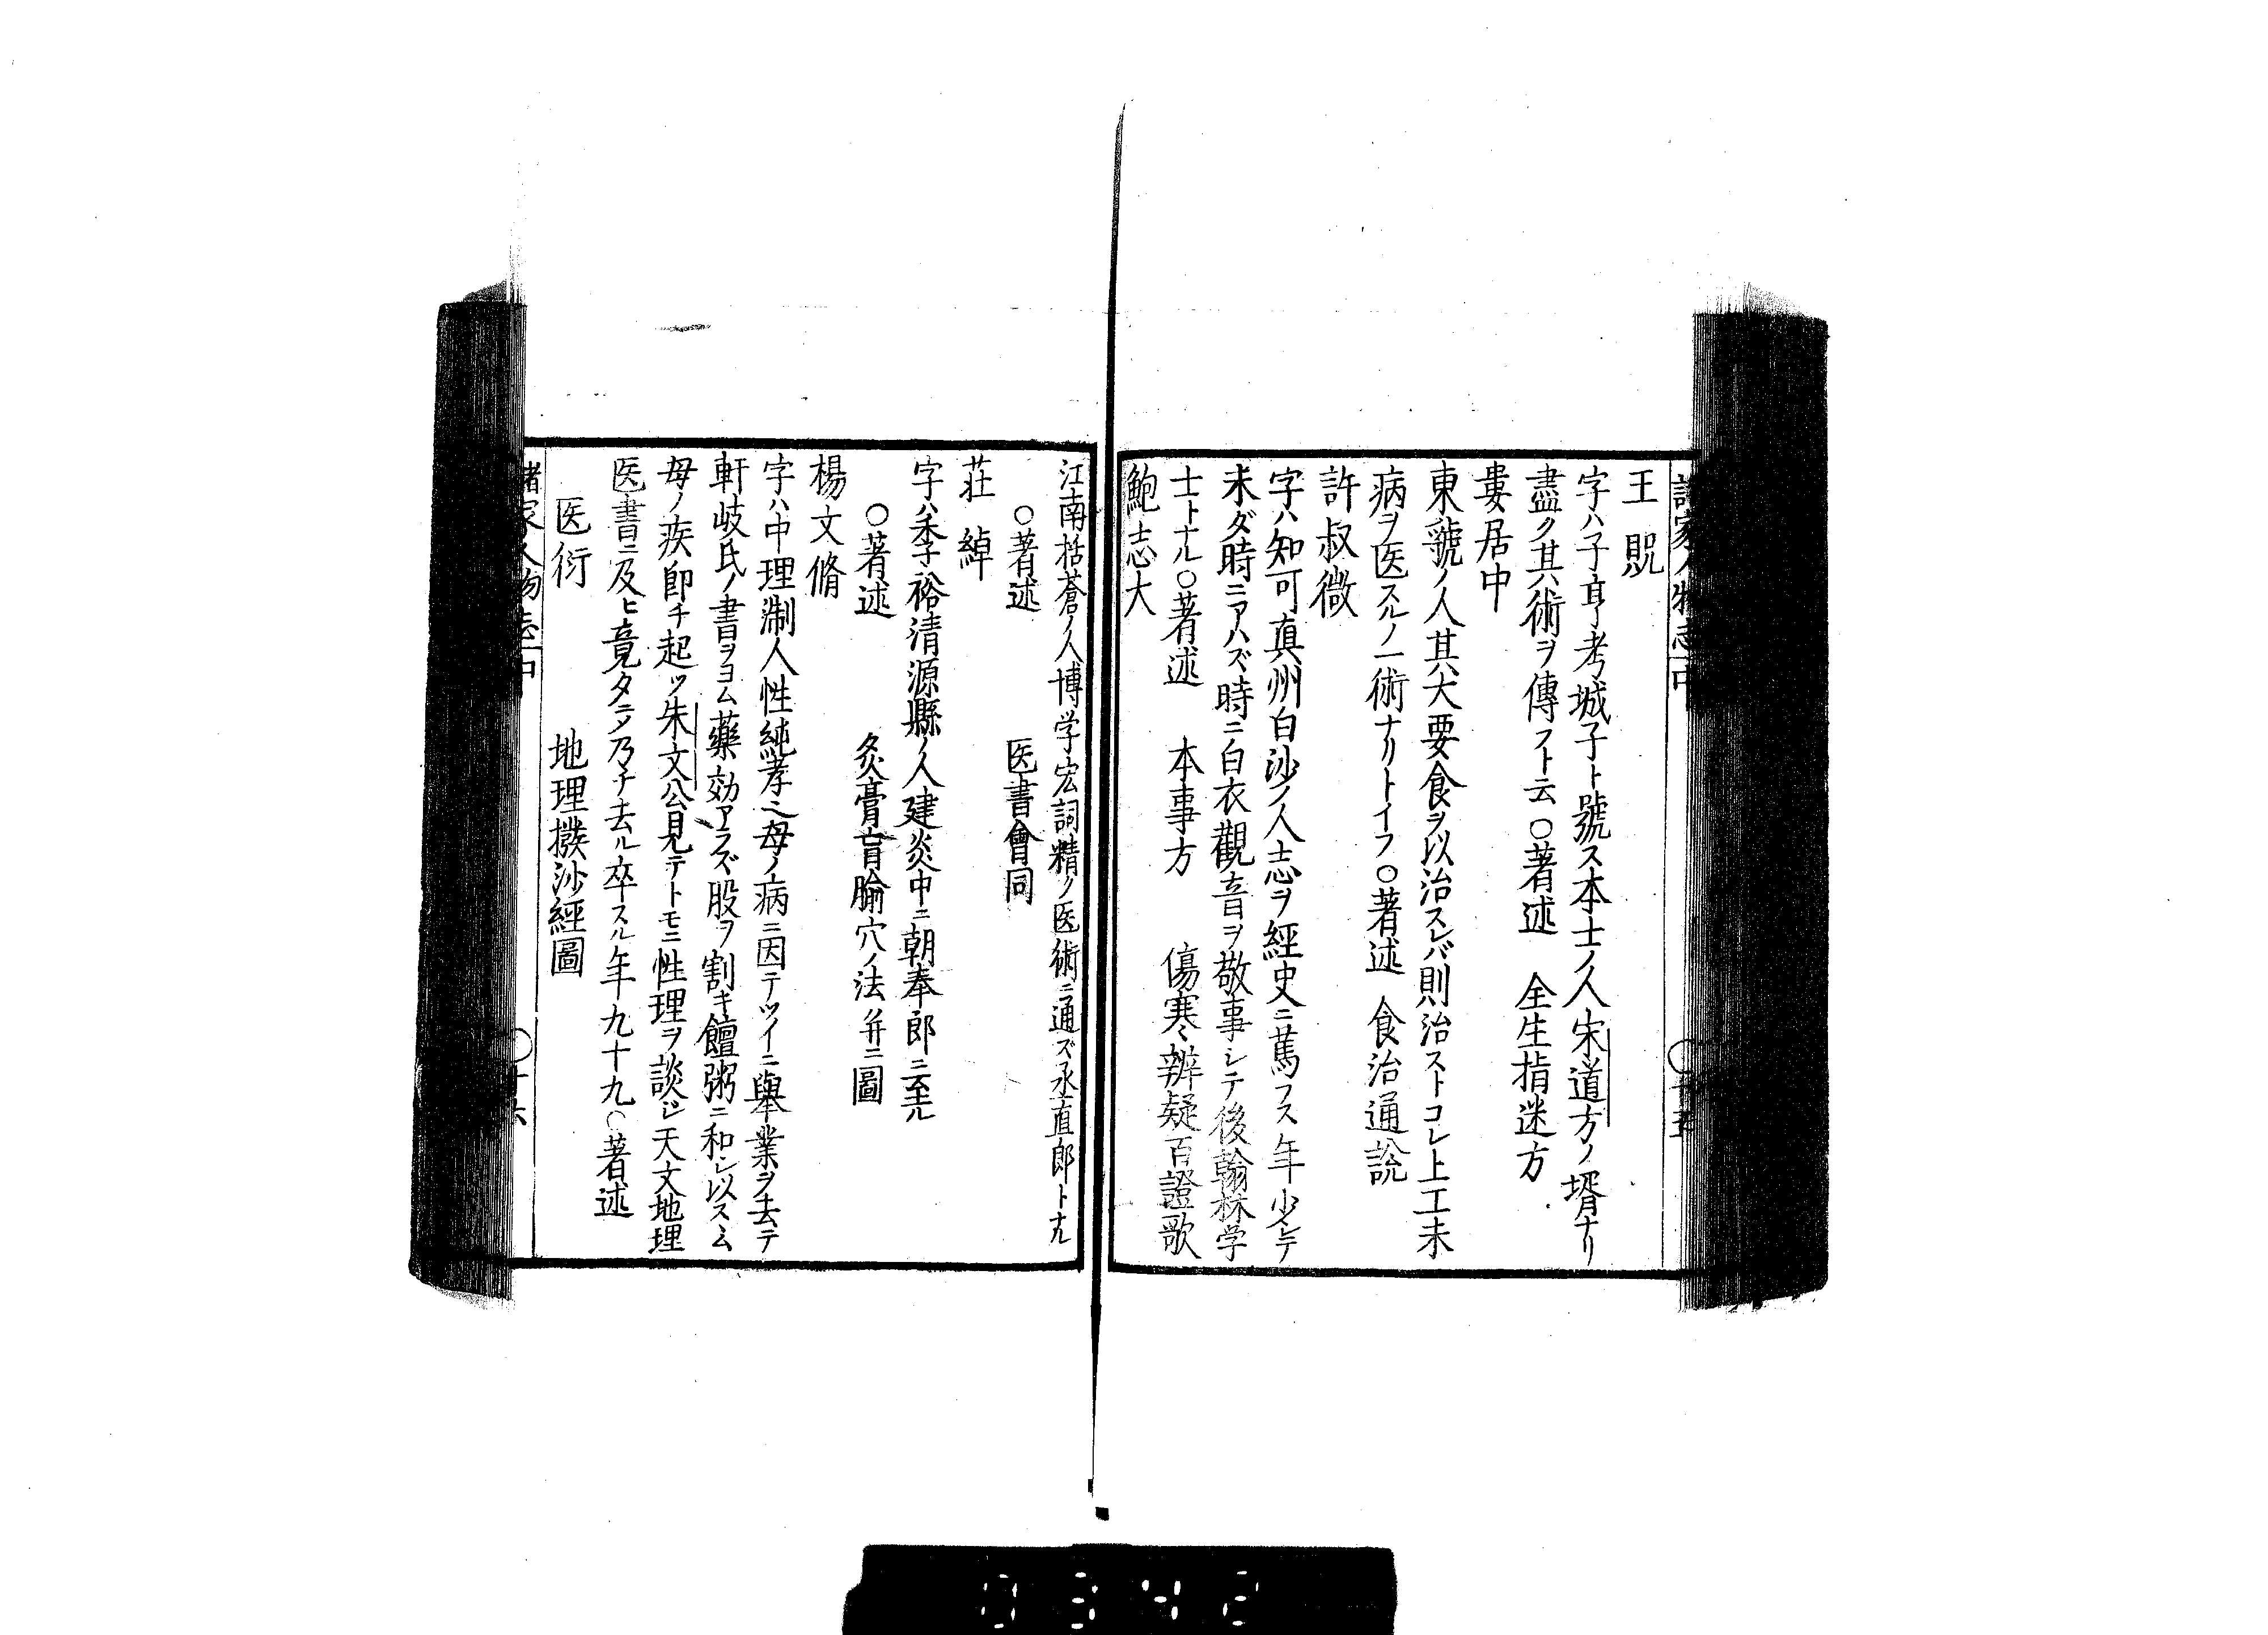 諸家人物志中 〇十五
王貺
字ハ子亨考城子ト號ス本士ノ人宋道方ノ壻ナリ
盡ク其術ヲ傳フト云〇著述 全生指迷方
婁居中
東虢ノ人其大要食ヲ以治スレバ則治ストコレ上工未
病ヲ医スルノ一術ナリトイフ〇著述 食治通說
許叔微
字ハ知可真州白沙ノ人志ヲ經史ニ篤フス年少シテ
未ダ時ニアハズ時ニ白衣觀音ヲ敬事シテ後翰林学
士トナル〇著述 本事方 傷寒辨疑百證歌
鮑志大
江南括蒼ノ人博学宏詞精ノ医術ニ通ズ丞直郎トナル
〇著述 医書會同
莊綽
字ハ季裕清源縣ノ人建炎中ニ朝奉郎ニ至ル
〇著述 灸膏肓腧穴ノ法并ニ圖
楊文脩
字ハ中理淛人性純孝之母ノ病ニ因テツイニ舉業ヲ去テ
軒岐氏ノ書ヲヨム藥効アラズ股ヲ割キ饘粥ニ和シ以スヽム
母ノ疾卽チ起ツ朱文公見テトモニ性理ヲ談ジ天文地理
医書ニ及ヒ竟夕ニメ乃チ去ル卒スル年九十九〇著述
医衍 地理撥沙經圖
諸家人物志中 〇十六
0342